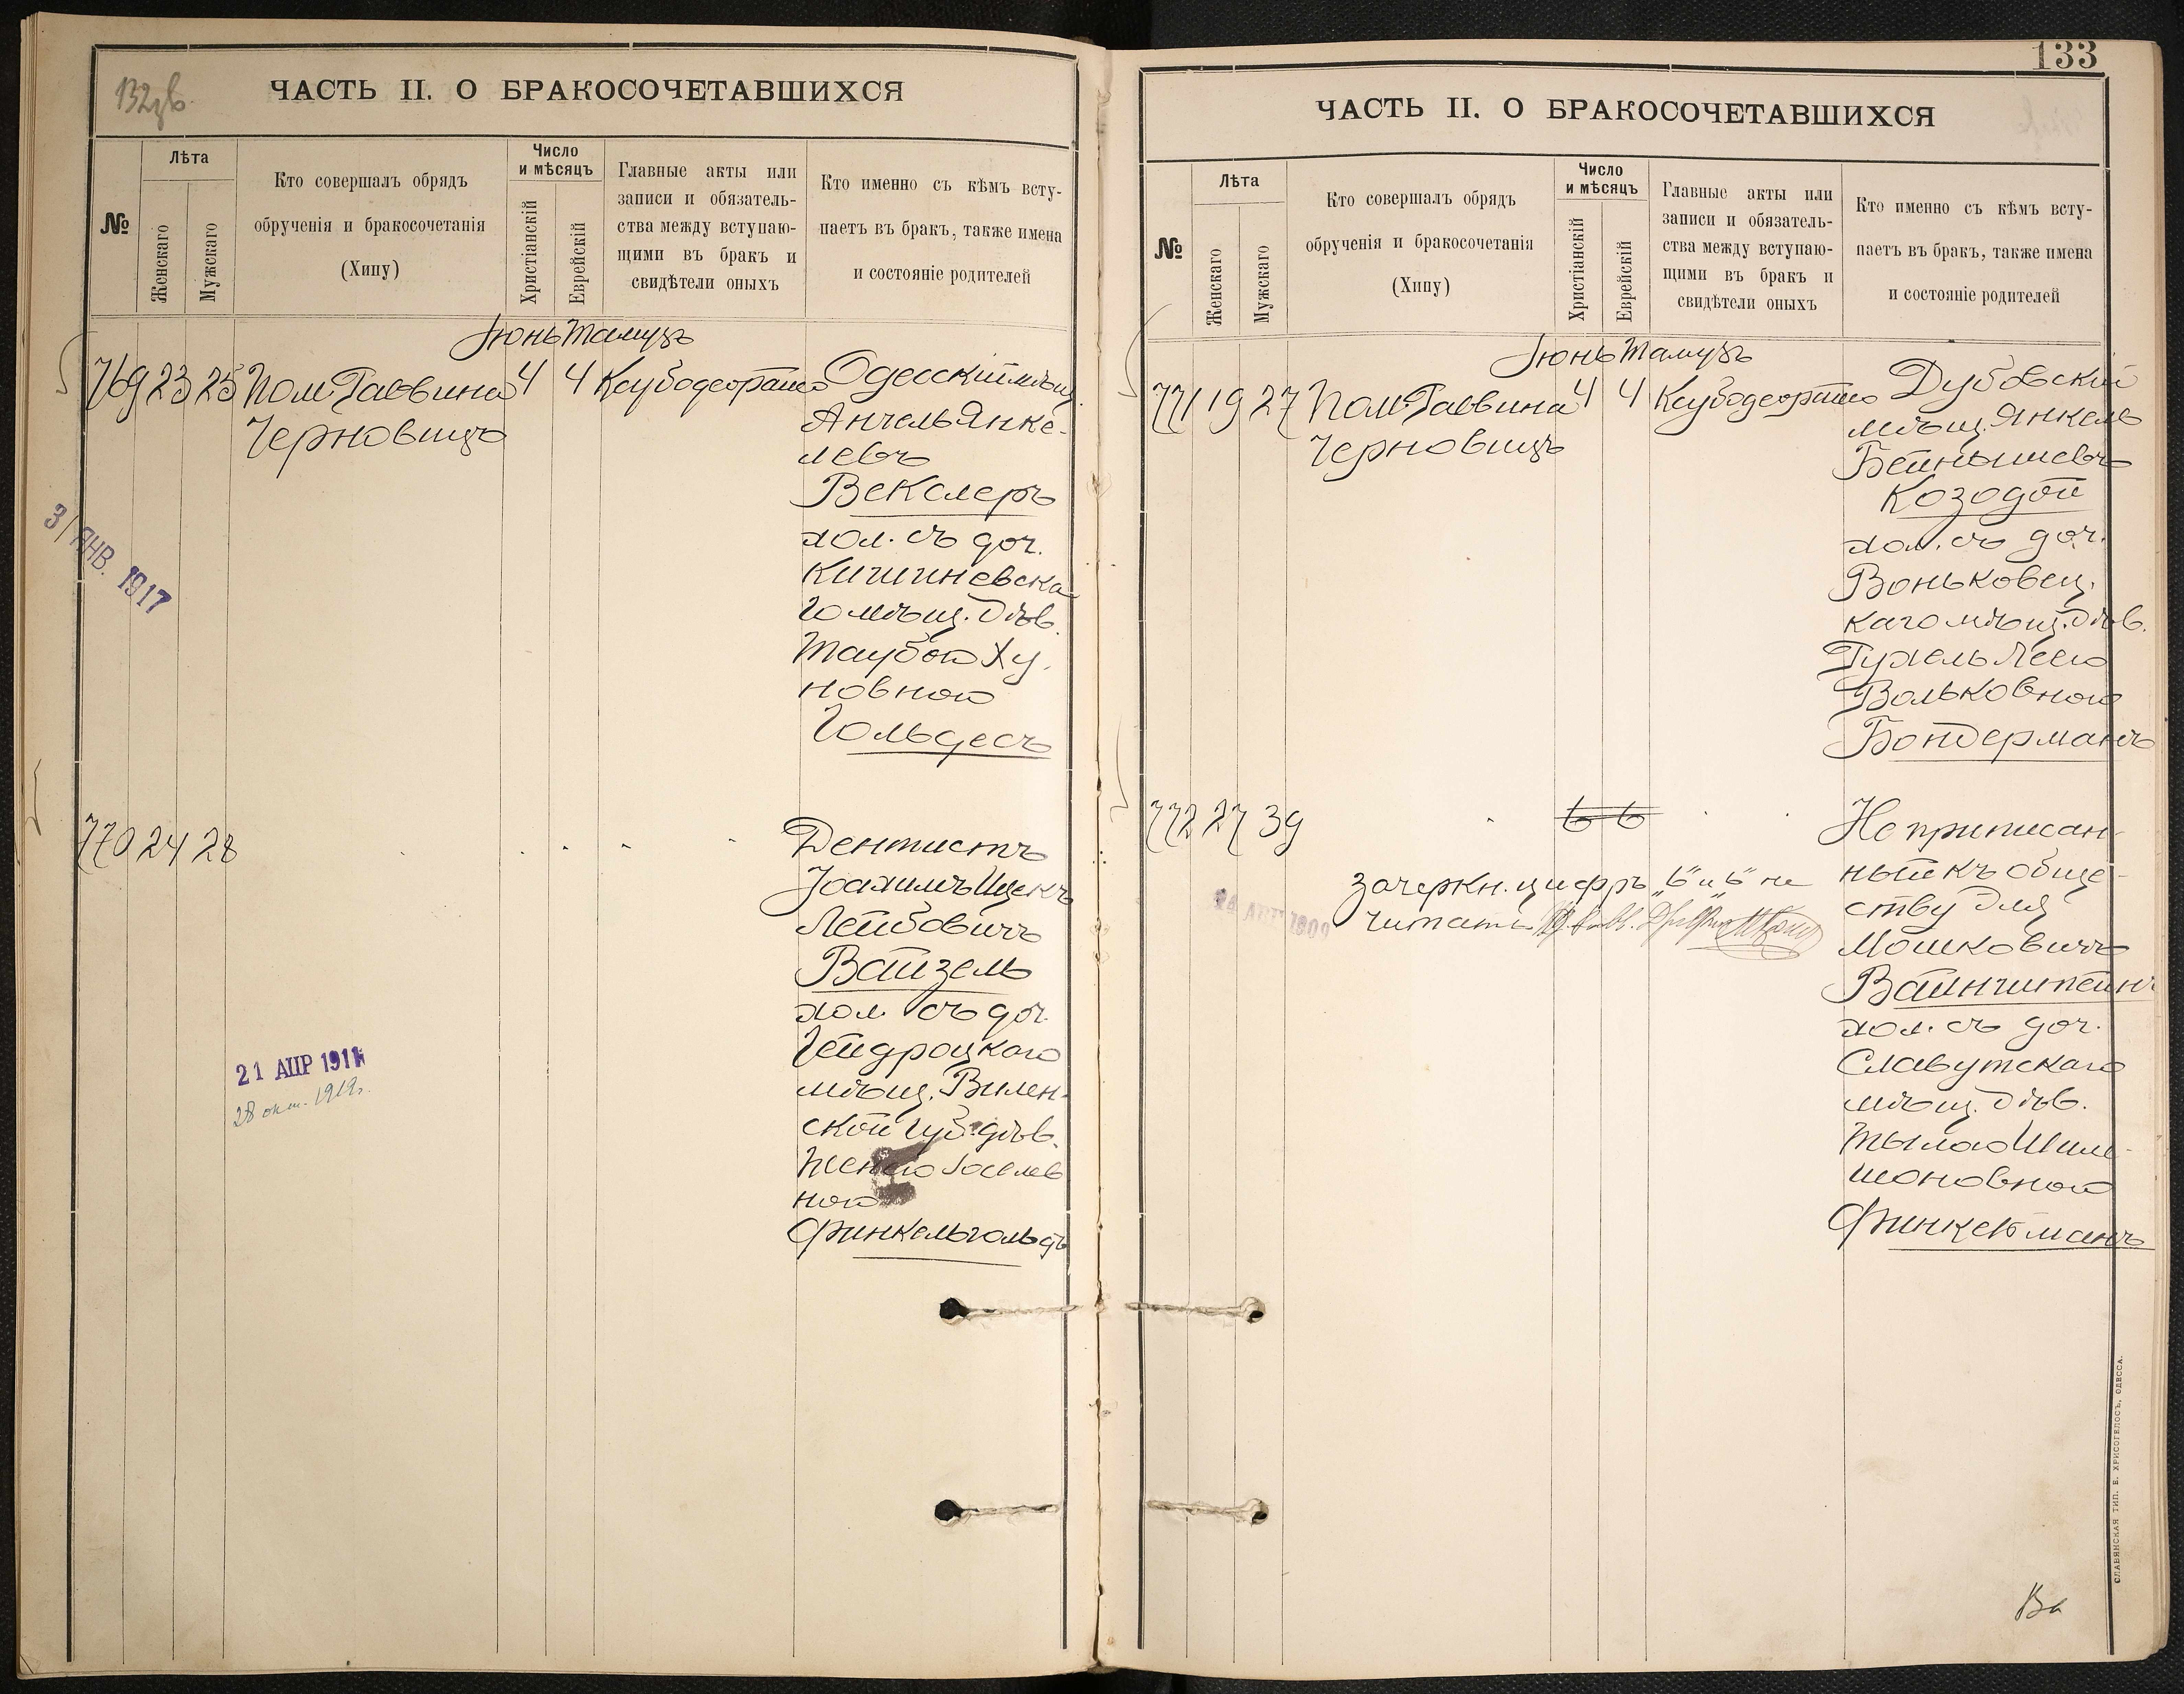 ЧАСТЬ II. О БРАКОСОЧЕТАВШИХСЯ
№
Лѣта
Женскаго
Мужскаго
Кто совершалъ обрядъ
обрученія и бракосочетанія
(Хипу)
Число
и мѣсяцъ
Христіанскій
Еврейскій
Главные акты или
записи и обязатель-
ства между вступаю-
щими въ бракъ и
свидѣтели оныхъ
Кто именно съ кѣмъ всту-
паетъ въ бракъ, также имена
и состояніе родителей
Іюнь Тамузъ
769 23 25 Пом. Раввина 4 4
Черновицъ
Одесскій мѣщ.
Анчель Янке-
левъ
Векслеръ
хол. съ доч.
Кишиневска-
го мѣщ. дѣв.
Таубою Ху-
новною
Гольдесъ
3/ ЯНВ. 1917
770 24 28
Дентистъ
Іоахимъ Ицекъ
Лейбовичъ
Вайзель
хол. съ доч.
Гейдроцкаго
мѣщ. Вилен-
ской губ. дѣв.
Іоселев
ною
Финкельгольдъ
21 АПР 1911
28 окт. 1912г.
133
ЧАСТЬ II. О БРАКОСОЧЕТАВШИХСЯ
№
Лѣта
Женскаго
Мужскаго
Кто совершалъ обрядъ
обрученія и бракосочетанія
(Хипу)
Число
и мѣсяцъ
Христіанскій
Еврейскій
Главные акты или
записи и обязатель-
ства между вступаю-
щими въ бракъ и
свидѣтели оныхъ
Кто именно съ кѣмъ всту-
паетъ въ бракъ, также имена
и состояніе родителей
Іюнь Тамузъ
771 19 27 Пом. Раввина 4 4
Черновицъ
Дубовскій
мѣщ. Янкель
Бейнышевъ
Козодой
хол. съ доч.
Воньковец-
каго мѣщ. дѣв.
Рухель Леею
Вольковною
Бондерманъ
772 27 39 6 6
зачеркн. цифръ „6" и „6" не
читать
Не приписан-
ный къ обще-
ству
Мошковичъ
Вайнштейнъ
хол. съ доч.
Славутскаго
мѣщ. дѣв.
Тылою Шим-
шоновной
Финкельманъ
СЛАВЯНСКАЯ ТИП. Е. ХРИСОГЕЛОСЪ, ОДЕССА.